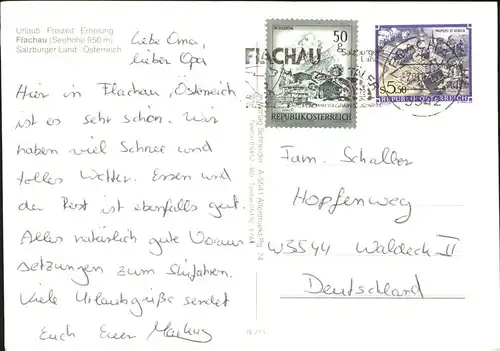 Urlaub Freizeit Erholung
Flachau (Seehöhe 950 m)
Salzburger Land · Österreich
Liebe Oma,
lieber Opa
Hier in Flachau, Österreich
ist es sehr schön. Wir
haben viel Schnee und
tolles Wetter. Essen und
der Rest ist ebenfalls gut.
Alles natürlich gute Voraus
setzungen zum Skifahren.
Viele Urlaubsgrüße sendet
Euch Euer Markus
50 g
REPUBLIK ÖSTERREICH
FLACHAU
S 5.50
REPUBLIK ÖSTERREICH
Fam. Schaller
Hopfenweg
W3544 Waldeck II
Deutschland